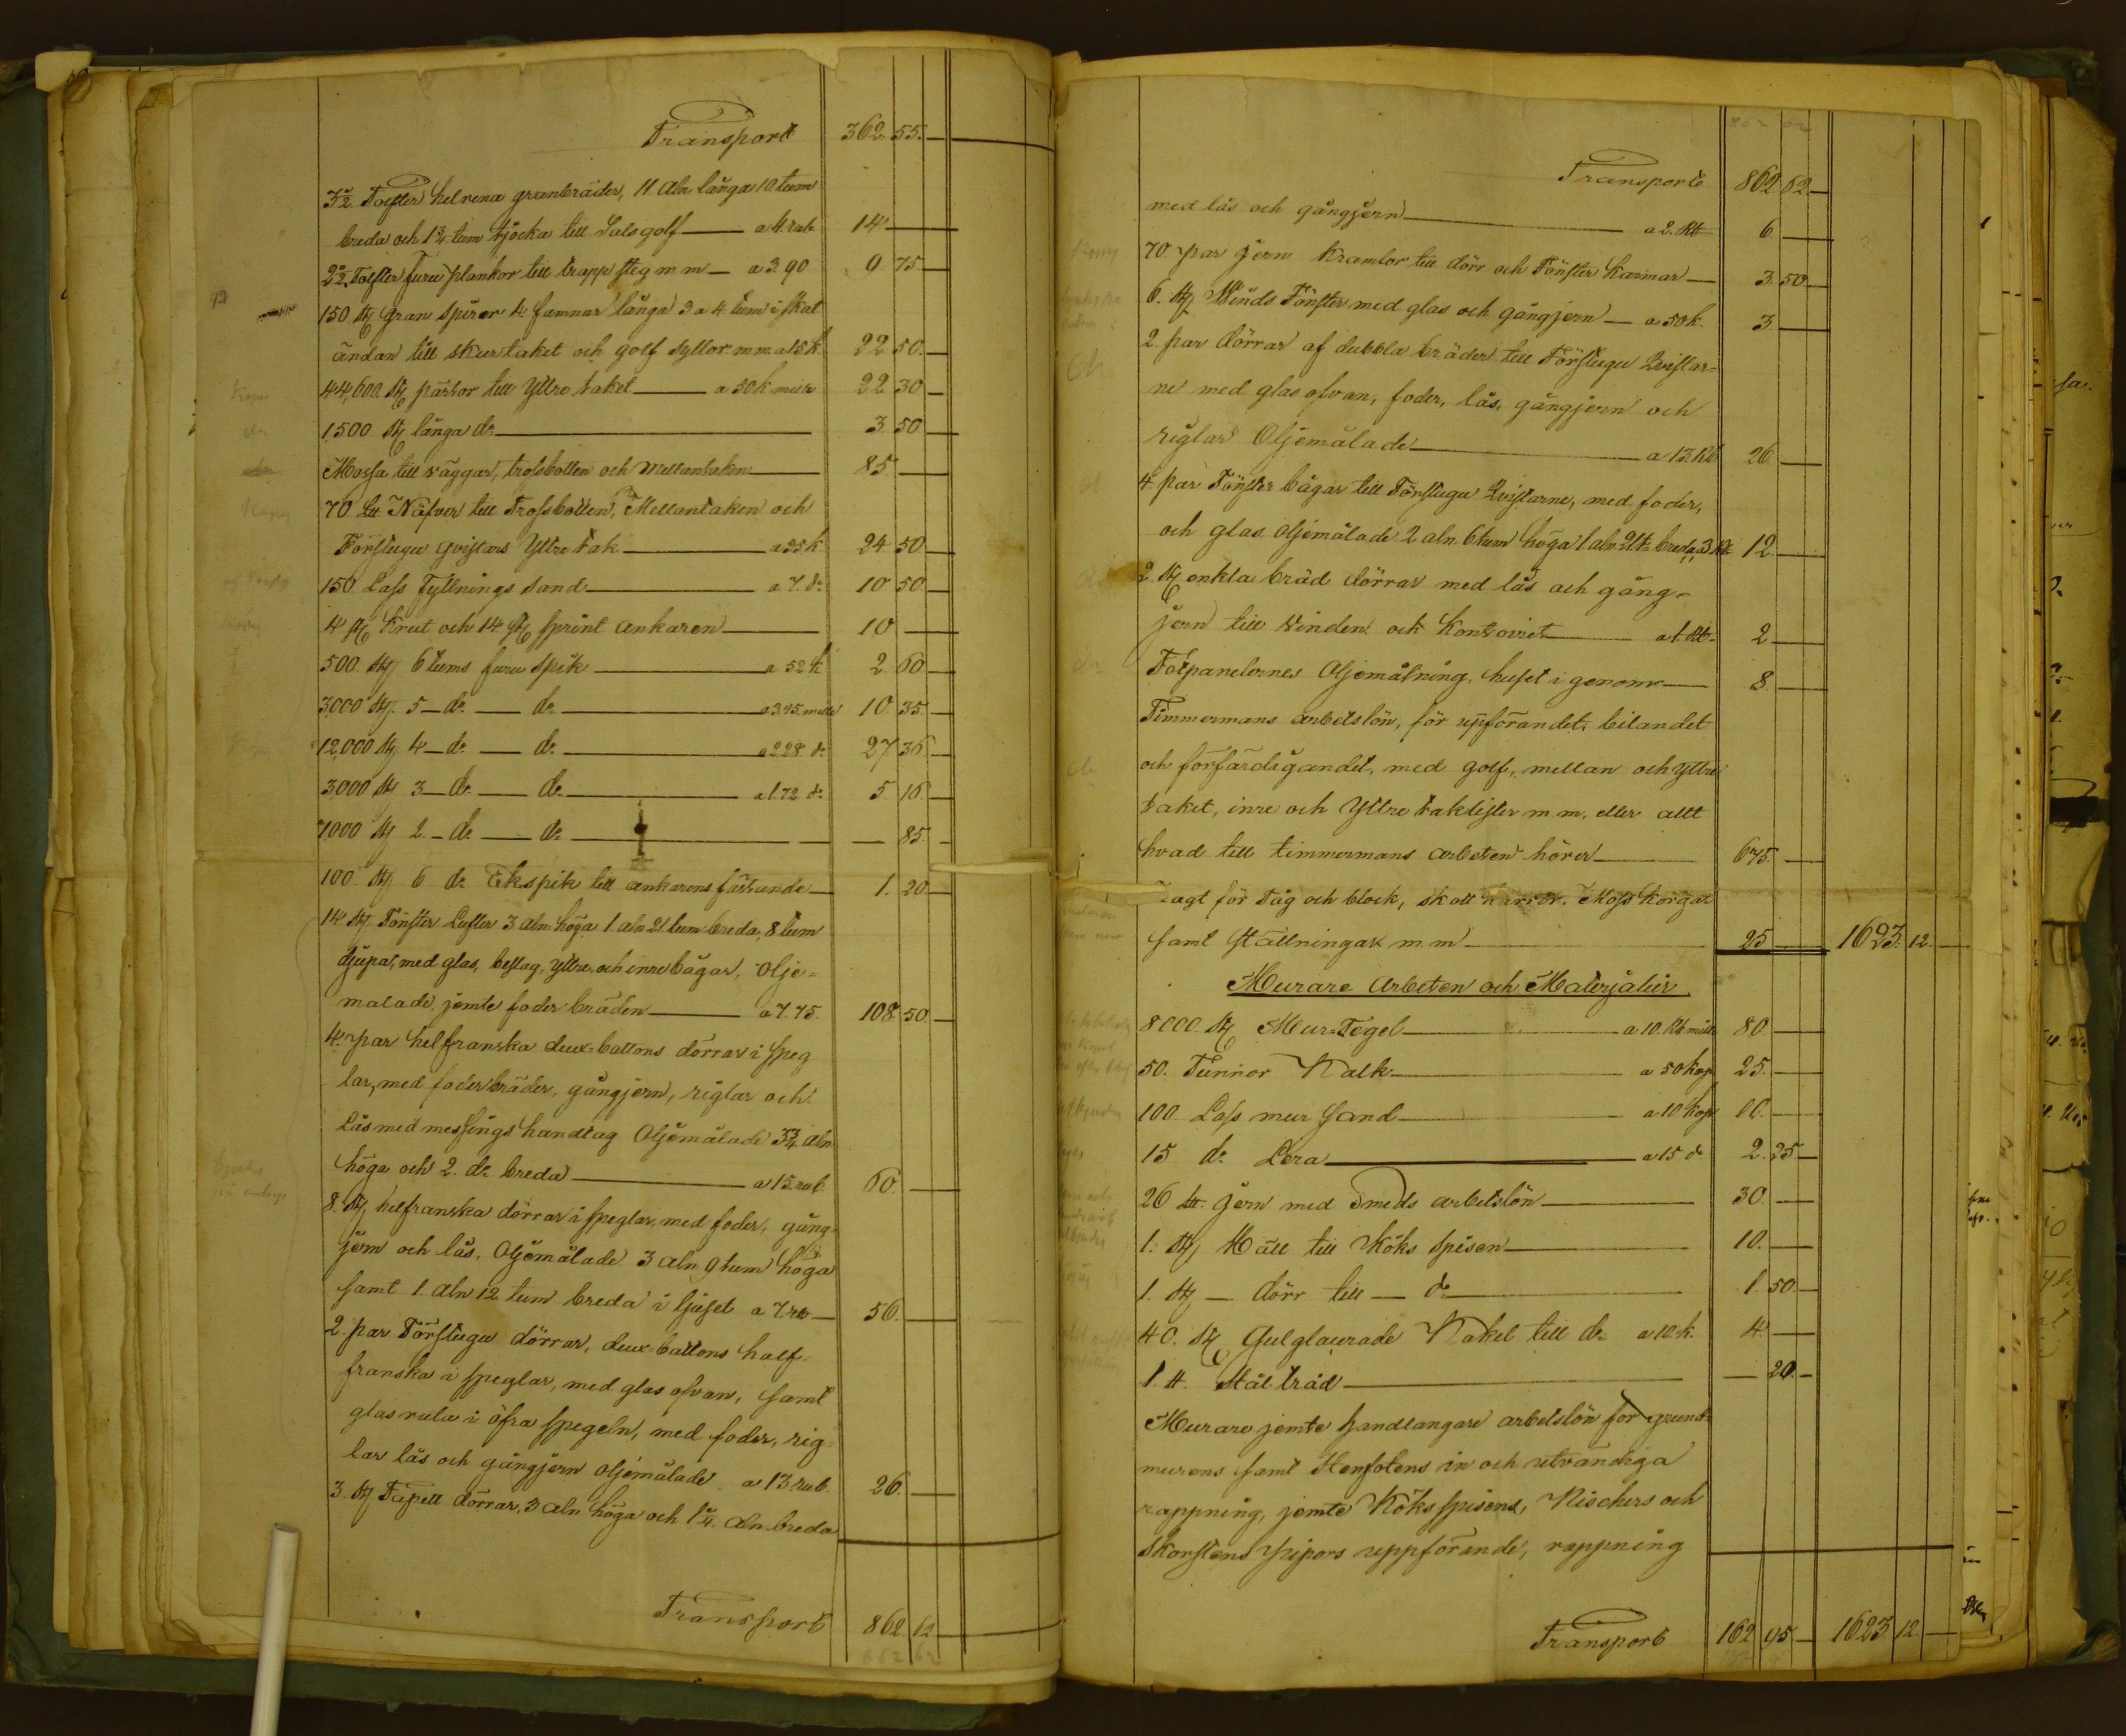 Transport 362 55.
3½ Tolfter helrena granbräder, 11 Aln långa 10 tum
breda och 1¾ tum tjocka till Salsgolf a 4. rub. 14
2½ Tolfter Furu plankor till trapp steg m m a 3.90 9 75
150 st Gran Spiror 4 famnar långa 3 a 4 tum i skat
ändan till skurtaket och golf syllor m.m. a 15 k 22 50
44,600. st pärtor till Yttre taket a 50 k mille 22 30
1,500 st långa do 3 50
Mossa till väggar, trossbotten och Mellantaken 85
70 Lit Näfver till Trossbotten, Mellantaken och
Förstugu qvistars Yttre tak a 35 k 24 50
150. Lass Fyllnings Sand a 7. do 10 50
4 st Krut och 14 st sprint ankaren 10
500. st 6 tums furu spik a 52 k 2 60
3000 st. 5 do do a 3.45. mille 10. 35
12,000 st 4 do do a 2 28 do 27 36
3,000 st 3 do do a 1.72 do 5 16
1,000 st 2 do do 85
100. st 6 do Ekspik till ankarens fästande 1. 20
14 st Fönster Lufter 3 aln höga 1 aln 21 tum breda, 8 tum
djupa, med glas, beslag, yttre och inre bågar, Olje-
malade jemte foder bräden a 7.75. 108. 50
4. par helfranska deux-battons dörrar i speg
lar, med foderbräder, gångjern, riglar och
Lås med messings handtag Oljemålade 3¾ aln
höga och 2. do breda a 15. rub 60.
8. st helfranska dörrar i speglar, med foder, gång-
jern och lås. Oljemålade 3 aln 9 tum höga
samt 1. aln 12 tum breda i ljuset a 7. rb 56.
2. par Förstugu dörrar, deux-battons half-
franska i speglar, med glas ofvan, samt
glasruta i öfra spegeln, med foder, rig-
lar lås och gångjern oljemålade a 13 rub. 26.
3. st Tapett dörrar, 3 aln höga och 1¼ aln breda
Transport 862. 62
862 62
862 62
Transport 862 62
med lås och gångjern a 2. Rb 6
70. par jern Kramlor till dörr och Fönster karmar 3. 50
6. st Vinds Fönster med glas och gångjern a 50 k. 3
2. par dörrar af dubbla bräder till Förstugu Qvistar-
ne med glas ofvan, foder, lås, gångjern och
riglar Oljemålade a 13 Rb 26
4 par Fönster bågar till Förstugu Qvistarne, med foder,
och glas oljemålade 2 aln. 6 tum höga 1 aln. 21 t. breda, a 3 Rb 12
2. st enkla bräd dörrar med lås och gång-
jern till Vinden och Kontoret a 1. Rb. 2
Fotpanelernes Oljemålning, huset i genom 8
Timmermans arbetslön, för uppförandet, bilandet
och förfärdigandet, med golf, mellan och yttre
taket, inre och Yttre taklister m.m. eller allt
hvad till timmermans arbeten hörer 675.
Lagt för Tåg och block, skott kärror. Moss korgar
samt ställningar m.m 25 1623. 12.
Murare Arbeten och Materjalier
8000. st Mur-Tegel a 10. Rb mille 80
50. Tunnor Kalk a 50 kop 25.
100. Lass mur sand a 10 kop 10.
15 do Lera a 15 do 2. 25
26 Lit. jern med Smeds arbetslön 30.
1. st Häll till köks spisen 10.
1. st dörr till do 1. 50
40. st Gulglaserade Kakel till do a 10 k. 4.
1. tt. Ståltråd 20.
Murare jemte handtlangare arbetslön för grund-
murens samt Stenfotens in och utvändiga
rappning, jemte Köksspisens, Kischers och
Skorstens pipors uppförande, rappning
Transport 162 95 1623. 12.